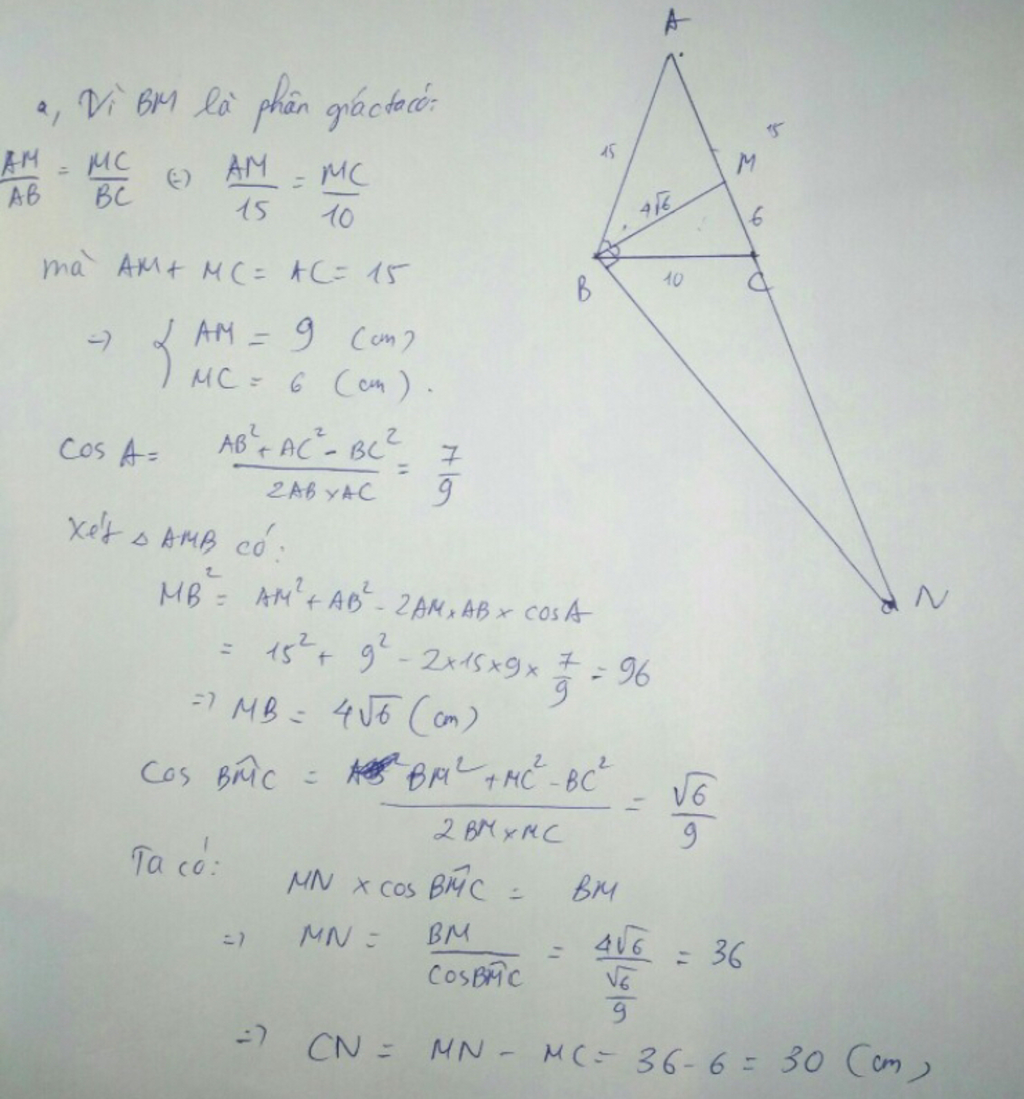 a, Vì BM là phân giác ta có:
AM/AB = MC/BC (=) AM/15 = MC/10
mà AM + MC = AC = 15
=> { AM = 9 (cm)
MC = 6 (cm).
Cos A = (AB² + AC² - BC²)/(2AB × AC) = 7/9
Xét △ AMB có:
MB² = AM² + AB² - 2AM × AB × cosA
= 15² + 9² - 2×15×9× 7/9 = 96
=> MB = 4√6 (cm)
Cos BM̂C = (BM² + MC² - BC²)/(2BM × MC) = √6/9
Ta có:
MN × cos BM̂C = BM
=> MN = BM/cosBM̂C = 4√6/(√6/9) = 36
=> CN = MN - MC = 36 - 6 = 30 (cm)
A
15
15
M
4√6
6
B
10
C
N